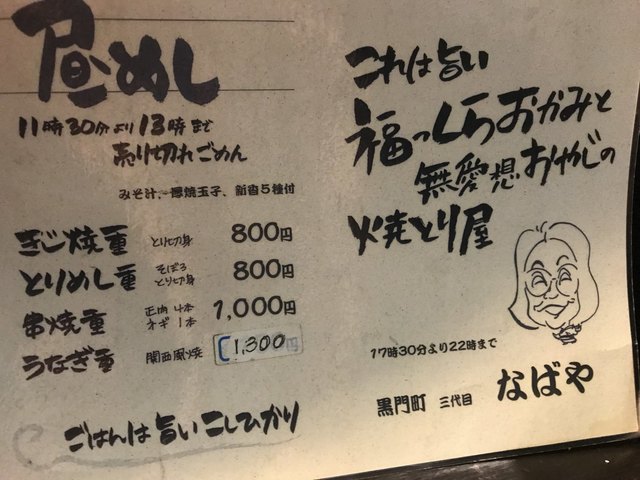 昼めし
11時30分より13時まで
売り切れごめん
みそ汁、厚焼玉子、新香5種付
きじ焼重 とり切身 800円
とりめし重 そぼろ とり切身 800円
串焼重 正肉4本 ネギ1本 1,000円
うなぎ重 関西風焼 1,300円
ごはんは旨いこしひかり
これは旨い
福っくらおかみと
無愛想おやじの
焼とり屋
17時30分より22時まで
黒門町 三代目 なばや